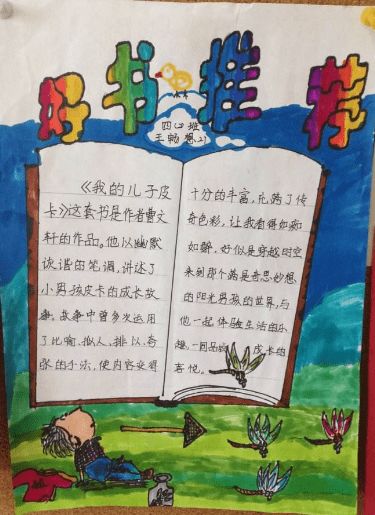 好书推荐
四(2)班
王畅想21
《我的儿子皮
卡》这套书是作者曹文
轩的作品。他以幽默
诙谐的笔调,讲述了
小男孩皮卡的成长故
事。故事中曾多次运用
了比喻、拟人、排以、夸
张的手法,使内容变得
十分的丰富,充满了传
奇色彩,让我看得如痴
如醉,好似是穿越时空
来到那个满是奇思妙想
的阳光男孩的世界,与
他一起体验生活的乐
趣,一同品 成长的
喜悦。